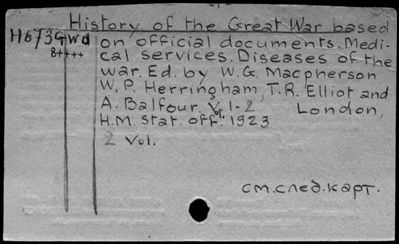 History of the Great War based
H673GWd on official documents. Medi-
8++++ cal services. Diseases of the
war. Ed. by W.G. Macpherson
W.P. Herringham, T.R. Elliot and
A. Balfour. V. 1-2 London,
H.M. stat. off. 1923
2 Vol.
см.след.карт.